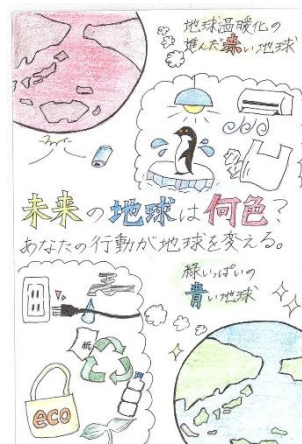 地球温暖化の
進んだ赤い地球
未来の地球は何色？
あなたの行動が地球を変える。
緑いっぱいの
青い地球
紙
eco